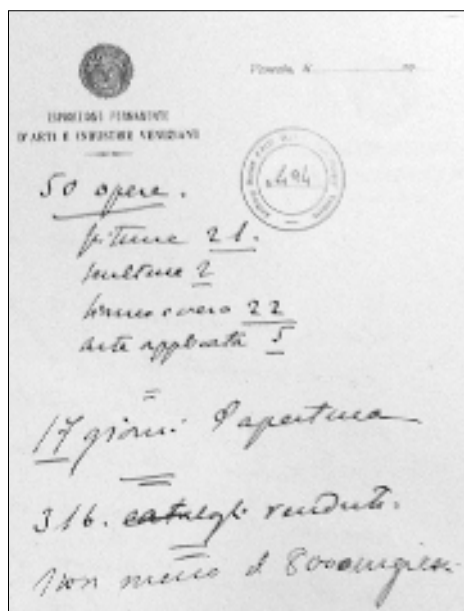 Venezia, li
ESPOSIZIONE PERMANENTE
D'ARTI E INDUSTRIE VENEZIANE
494
50 opere.
pitture 21.
sculture 2
bianco e nero 22
arte applicata 5
17 giorni d'apertura
316. cataloghi venduti.
Non meno di 8000 ingressi